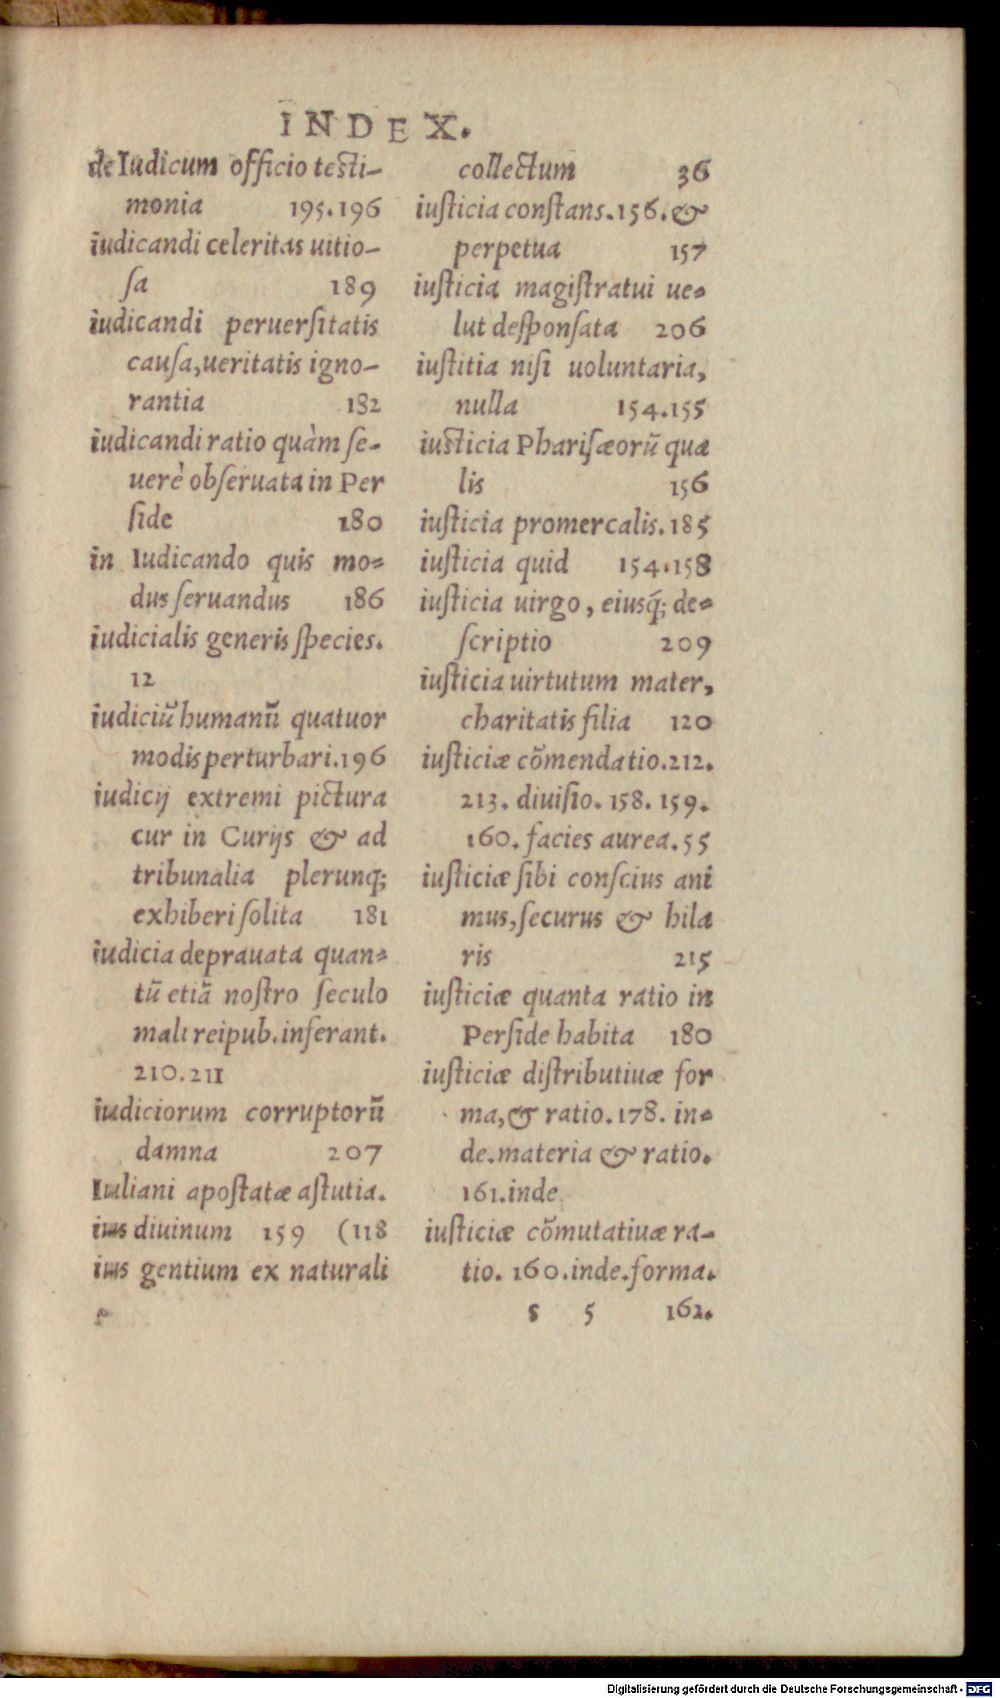 INDEX.
de Iudicum officio testi-
monia 195.196
iudicandi celeritas uitio-
sa 189
iudicandi peruersitatis
causa, ueritatis igno-
rantia 182
iudicandi ratio quàm se-
uerè obseruata in Per
side 180
in Iudicando quis mo-
dus seruandus 186
iudicialis generis species.
12
iudiciū humanū quatuor
modis perturbari. 196
iudicij extremi pictura
cur in Curijs & ad
tribunalia plerunq;
exhiberi solita 181
iudicia deprauata quan-
tū etiā nostro seculo
mali reipub. inferant.
210.211
iudiciorum corruptorū
damna 207
Iuliani apostatæ astutia.
ius diuinum 159 (118
ius gentium ex naturali
collectum 36
iusticia constans. 156. &
perpetua 157
iusticia magistratui ue-
lut desponsata 206
iustitia nisi uoluntaria,
nulla 154.155
iusticia Pharisæorū qua
lis 156
iusticia promercalis. 185
iusticia quid 154.158
iusticia uirgo, eiusq́; de-
scriptio 209
iusticia uirtutum mater,
charitatis filia 120
iusticiæ cōmendatio. 212.
213. diuisio. 158. 159.
160. facies aurea. 55
iusticiæ sibi conscius ani
mus, securus & hila
ris 215
iusticiæ quanta ratio in
Perside habita 180
iusticiæ distributiuæ for
ma, & ratio. 178. in-
de. materia & ratio.
161. inde
iusticiæ cōmutatiuæ ra-
tio. 160. inde. forma.
s 5 162.
Digitalisierung gefördert durch die Deutsche Forschungsgemeinschaft - DFG